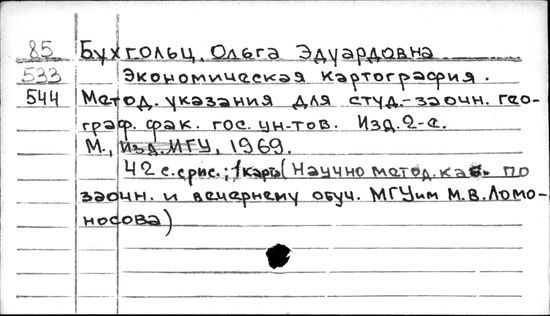 85 Бухгольц, Ольга Эдуардовна
533 Экономическая картография.
544 Метод. указания для студ.-заочн. гео-
граф. фак. гос. ун-тов. Изд. 2-е.
М., Изд. МГУ, 1969.
42 с. с рис.; 1 карта (Научно метод. каб. по
заочн. и вечернему обуч. МГУ им М.В. Ломо-
носова)